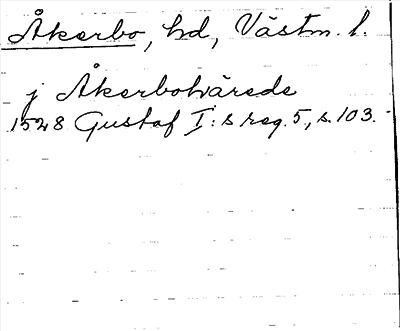 Åkerbo, hd, Västm. l.
j Åkerbohärede
1528 Gustaf I:s reg. 5, s. 103.